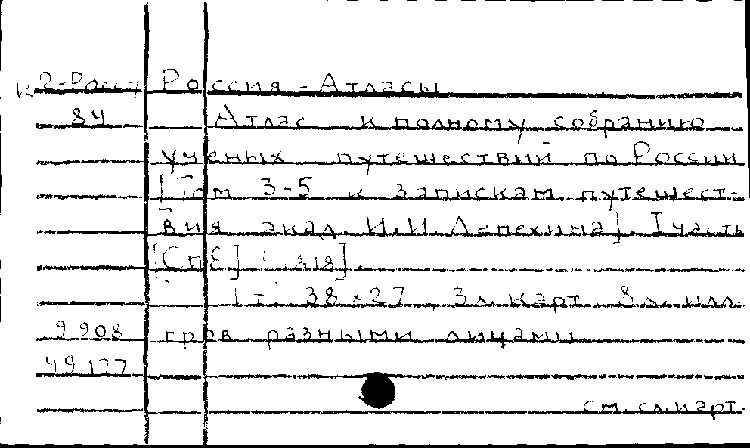 Россия - Атласы
84 Атлас к полному собранию
ученых путешествий по России
[Том 3-5 к запискам путешест-
вия акад. И.И. Лепехина]. I часть
[СПб] 1818].
1 т. 38×27, 3 л. карт 8 л. илл.
9908 грав разными лицами
49177
см. сл. карт.